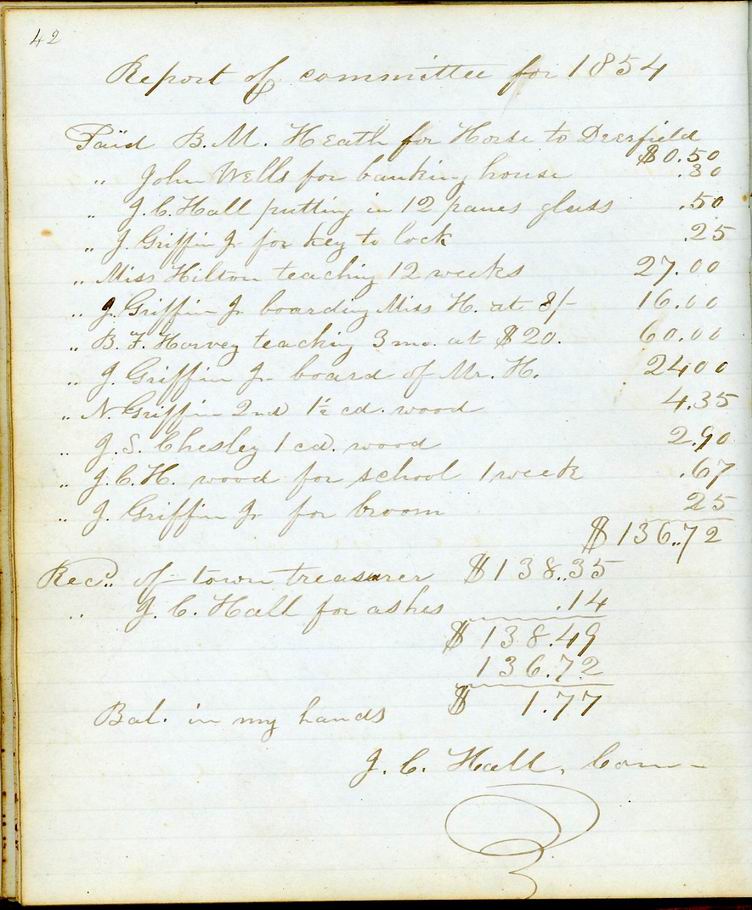 42
Report of committee for 1854
Paid B. M. Heath for Horse to Deerfield $0.50
" John Wells for banking house .30
" J. C. Hall putting in 12 panes glass .50
" J. Griffin Jr. for key to lock .25
" Miss Hilton teaching 12 weeks 27.00
" J. Griffin Jr. boarding Miss H. at 8/- 16.00
" B. F. Harvey teaching 3 mo. at $20. 60.00
" J. Griffin Jr. board of Mr. H. 24.00
" N. Griffin 2nd 1½ cd. wood 4.35
" J. S. Chesley 1 cd. wood 2.90
" J. C. H. wood for school 1 week .67
" J. Griffin Jr. for broom 25
$136.72
Rec'd. of town treasurer $138.35
" J. C. Hall for ashes .14
$138.49
136.72
Bal. in my hands $ 1.77
J. C. Hall, Com-